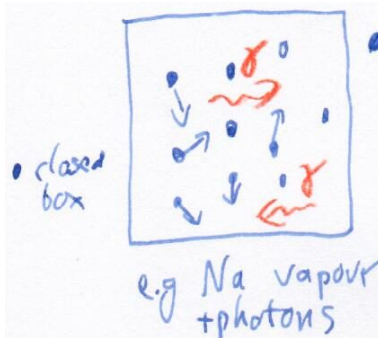 γ
γ
• closed
box
e.g Na vapour
+photons